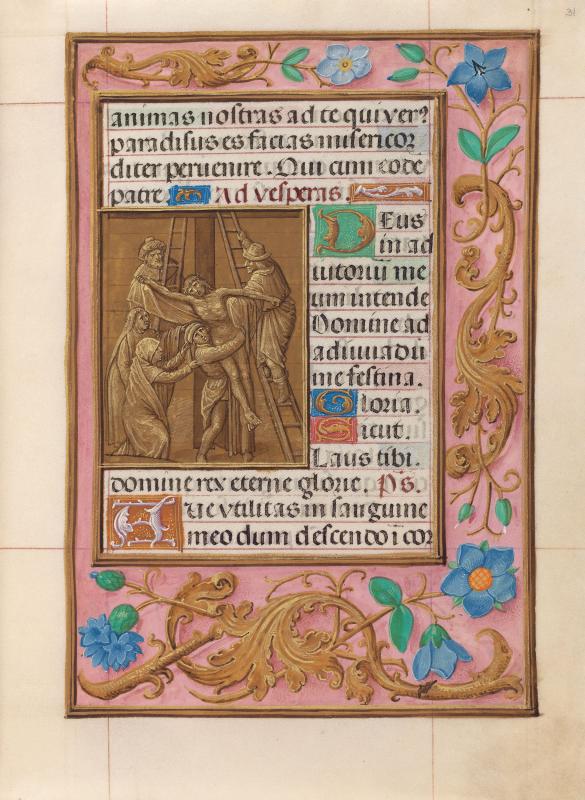 31
animas nostras ad te qui ver?
paradisus es facias misericor
diter peruenire. Qui cum eode
patre. Ad vesperas.
Deus
in ad
iutoriū me
um intende
Domine ad
adiuuādū
me festina.
Gloria.
Sicut.
Laus tibi.
domine rex eterne glorie. Ps.
Que vtilitas in sanguine
meo dum descendo ī cor